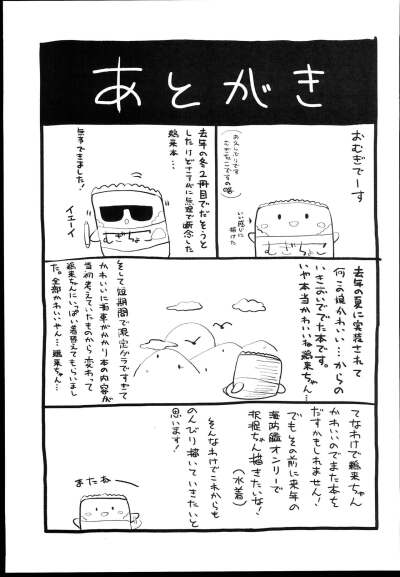 あとがき
おむぎでーす
(お久しぶりです
むぎちょこですの略)
いい感じに
描けた
去年の冬2冊目でだそうと
したけどさすがに無理で断念した
鵜来本…
無事できました!
イエーイ
むぎちょこ
去年の夏に実装されて
何この娘かわいい…からの
いきおいででた本です。
いや本当かわいいね鵜来ちゃん…
そして短期間で限定グラですぎて
かわいいに拍車がかかり本の内容が
当初考えていたものから変わって
鵜来ちゃんにいっぱい着替えてもらいまし
た。全部かわいいやん…鵜来ちゃん…
てなわけで鵜来ちゃん
かわいいのでまた本を
だすかもしれません!
でもその前に来年の
海防艦オンリーで
択捉ちゃん描きたいな!
(水着)
そんなわけでこれからも
のんびり描いていきたいと
思います!
また本